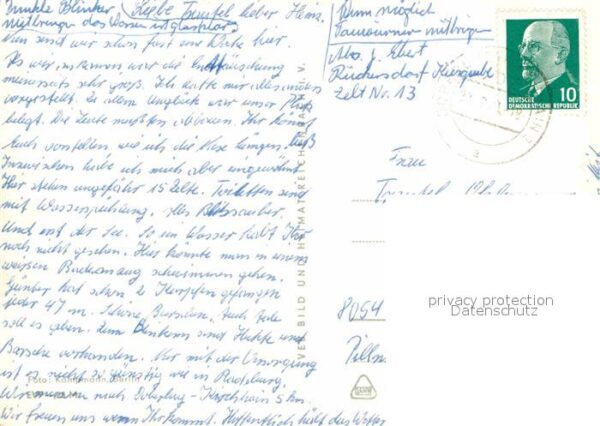 Dunkle Blinker
mitbringen das Wasser ist glasklar
Liebe Trautel lieber Heinz
Nun sind wir schon fast eine Woche hier.
Als wir ankamen war die Enttäuschung
meinerseits sehr groß. Ich hatte mir alles anders
vorgestellt. Zu allem Unglück war unser Platz
belegt. Die Leute mußten abbauen. Ihr könnt
Euch vorstellen wie ich die Nase hängen ließ
Inzwischen habe ich mich aber eingewöhnt.
Hier stehen ungefähr 15 Zelte. Toiletten sind
mit Wasserspülung, alles blitzsauber.
Und erst der See. So ein Wasser habt Ihr
noch nicht gesehen. Hier könnte man in einem
weißen Badeanzug schwimmen gehen.
Günter hat schon 2 Karpfen gefangen
jeder 47 cm. Schöne Burschen. Auch
soll es geben. Zum Blinkern sind Hechte und
Barsche vorhanden. Nur mit der Versorgung
ist es nicht so günstig wie in
Wir müssen nach Doberlug-Kirchhain 5 km.
Wir freuen uns wenn Ihr kommt. Hoffentlich hält das Wetter
Wenn möglich
mitbringen
Abs. J. Ebert
Rückersdorf Kiesgrube
Zelt Nr. 13
DEUTSCHE
DEMOKRATISCHE REPUBLIK
10
Frau
8054
Pilln
VER BILD UND HEIMAT REICHENBACH I. V.
Foto:
Berlin
privacy protection
Datenschutz